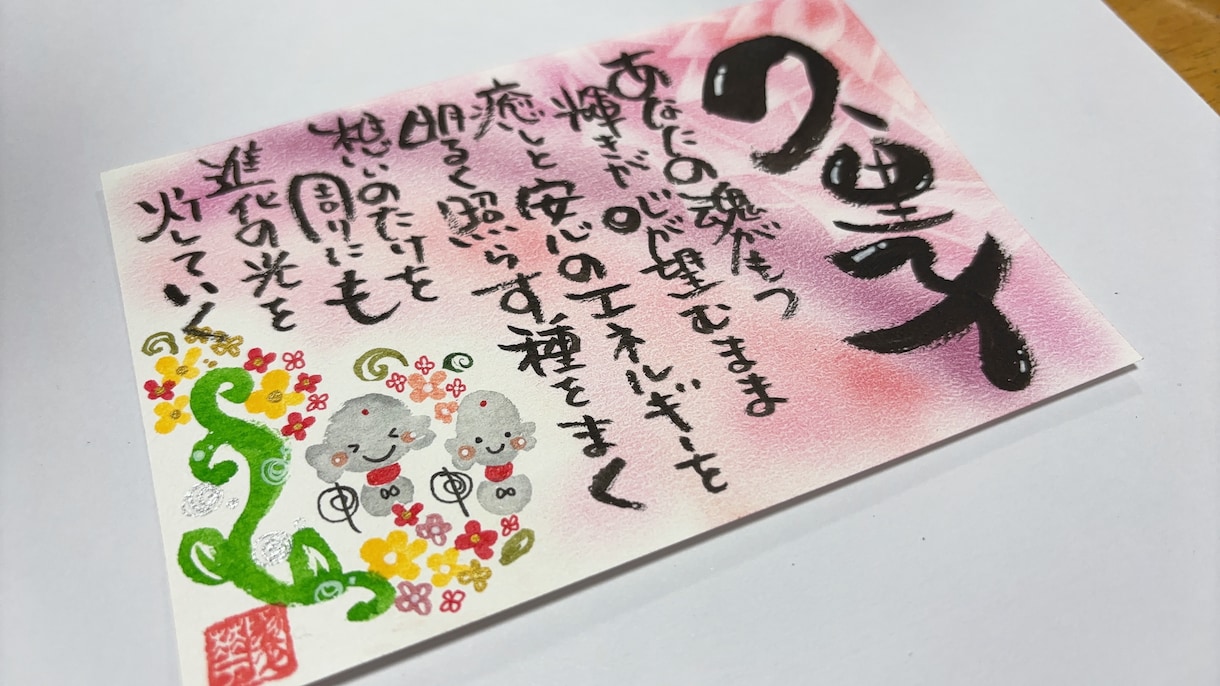 久里子
あなたの魂がもつ
輝きが望むまま
癒しと安心のエネルギーを
明るく照らす種をまく
想いのたけを
周りにも
進化の光を
灯していく